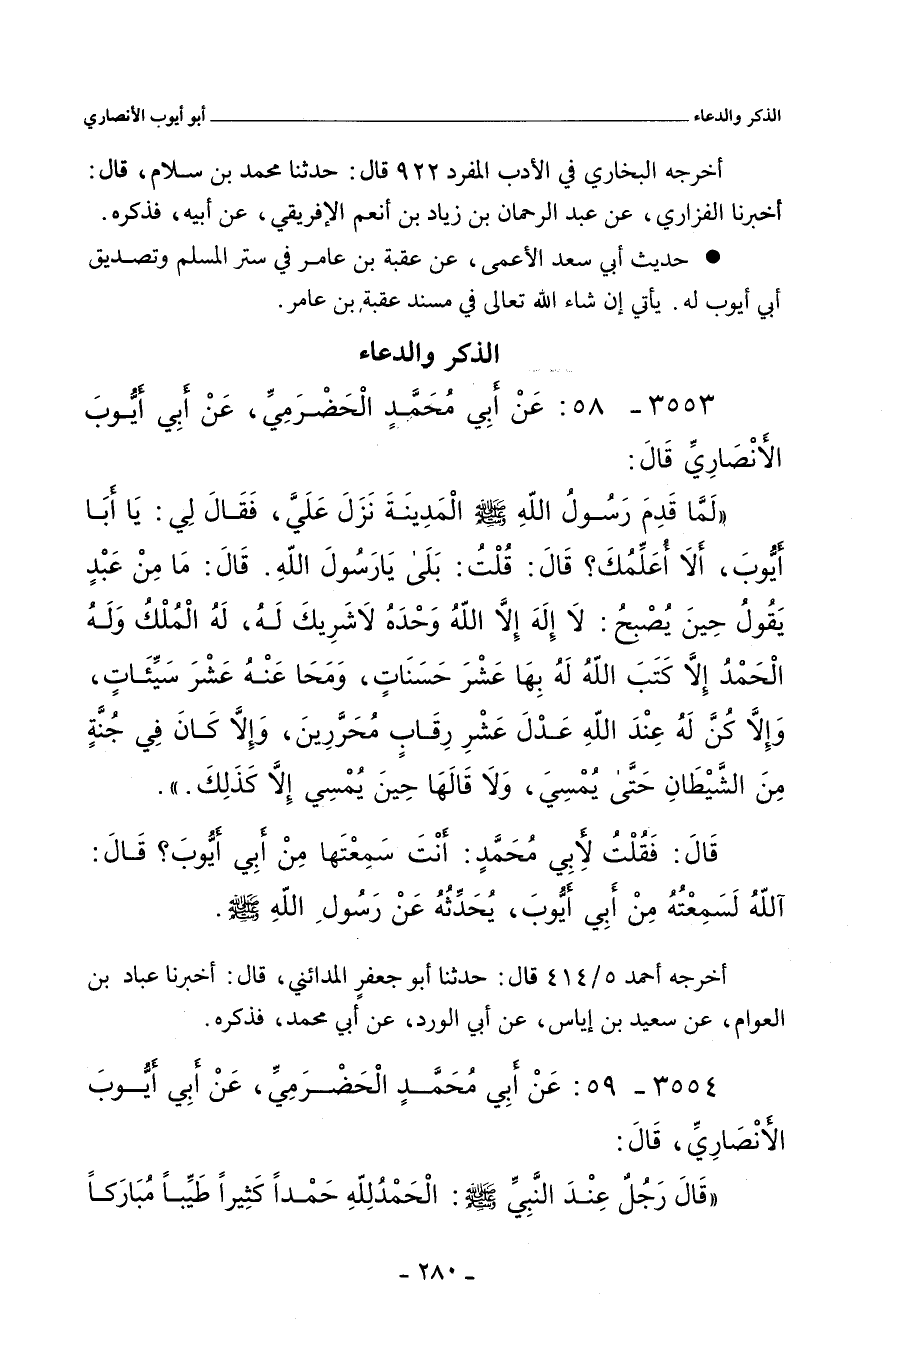 الذكر والدعاء ــــــــــــــــــــ أبو أيوب الأنصاري
أخرجه البخاري في الأدب المفرد ٩٢٢ قال: حدثنا محمد بن سلام، قال:
أخبرنا الفزاري، عن عبد الرحمان بن زياد بن أنعم الإفريقي، عن أبيه، فذكره.
● حديث أبي سعد الأعمى، عن عقبة بن عامر في ستر المسلم وتصديق
أبي أيوب له. يأتي إن شاء الله تعالى في مسند عقبة بن عامر.
الذكر والدعاء
٣٥٥٣ ـ ٥٨: عَنْ أَبِي مُحَمَّدٍ الْحَضْرَمِيِّ، عَنْ أَبِي أَيُّوبَ
الأَنْصَارِيِّ قَالَ:
«لَمَّا قَدِمَ رَسُولُ اللّهِ ﷺ الْمَدِينَةَ نَزَلَ عَلَيَّ، فَقَالَ لِي: يَا أَبَا
أَيُّوبَ، أَلَا أُعَلِّمُكَ؟ قَالَ: قُلْتُ: بَلَىٰ يَارَسُولَ اللّهِ. قَالَ: مَا مِنْ عَبْدٍ
يَقُولُ حِينَ يُصْبِحُ: لَا إِلَهَ إِلَّا اللّهُ وَحْدَهُ لَاشَرِيكَ لَهُ، لَهُ الْمُلْكُ وَلَهُ
الْحَمْدُ إِلَّا كَتَبَ اللّهُ لَهُ بِهَا عَشْرَ حَسَنَاتٍ، وَمَحَا عَنْهُ عَشْرَ سَيِّئَاتٍ،
وَإِلَّا كُنَّ لَهُ عِنْدَ اللّهِ عَدْلَ عَشْرِ رِقَابٍ مُحَرَّرِينَ، وَإِلَّا كَانَ فِي جُنَّةٍ
مِنَ الشَّيْطَانِ حَتَّىٰ يُمْسِيَ، وَلَا قَالَهَا حِينَ يُمْسِي إِلَّا كَذَلِكَ.».
قَالَ: فَقُلْتُ لِأَبِي مُحَمَّدٍ: أَنْتَ سَمِعْتَهَا مِنْ أَبِي أَيُّوبَ؟ قَالَ:
آللّهُ لَسَمِعْتُهُ مِنْ أَبِي أَيُّوبَ، يُحَدِّثُهُ عَنْ رَسُولِ اللّهِ ﷺ.
أخرجه أحمد ٤١٤/٥ قال: حدثنا أبو جعفرٍ المدائني، قال: أخبرنا عباد بن
العوام، عن سعيد بن إياس، عن أبي الورد، عن أبي محمد، فذكره.
٣٥٥٤ ـ ٥٩: عَنْ أَبِي مُحَمَّدٍ الْحَضْرَمِيِّ، عَنْ أَبِي أَيُّوبَ
الأَنْصَارِيِّ، قَالَ:
«قَالَ رَجُلٌ عِنْدَ النَّبِيِّ ﷺ: الْحَمْدُلِلّهِ حَمْداً كَثِيراً طَيِّباً مُبَارَكاً
ـ ٢٨٠ ـ